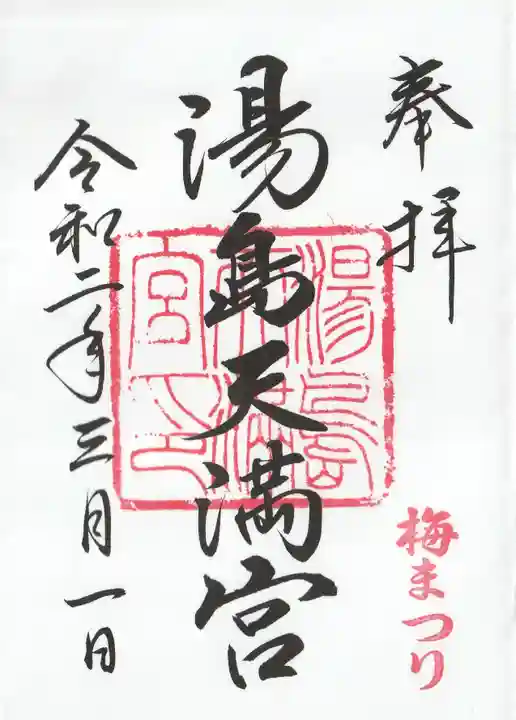 奉拝
梅まつり
湯島天満宮
湯島天満宮印
令和二年三月一日